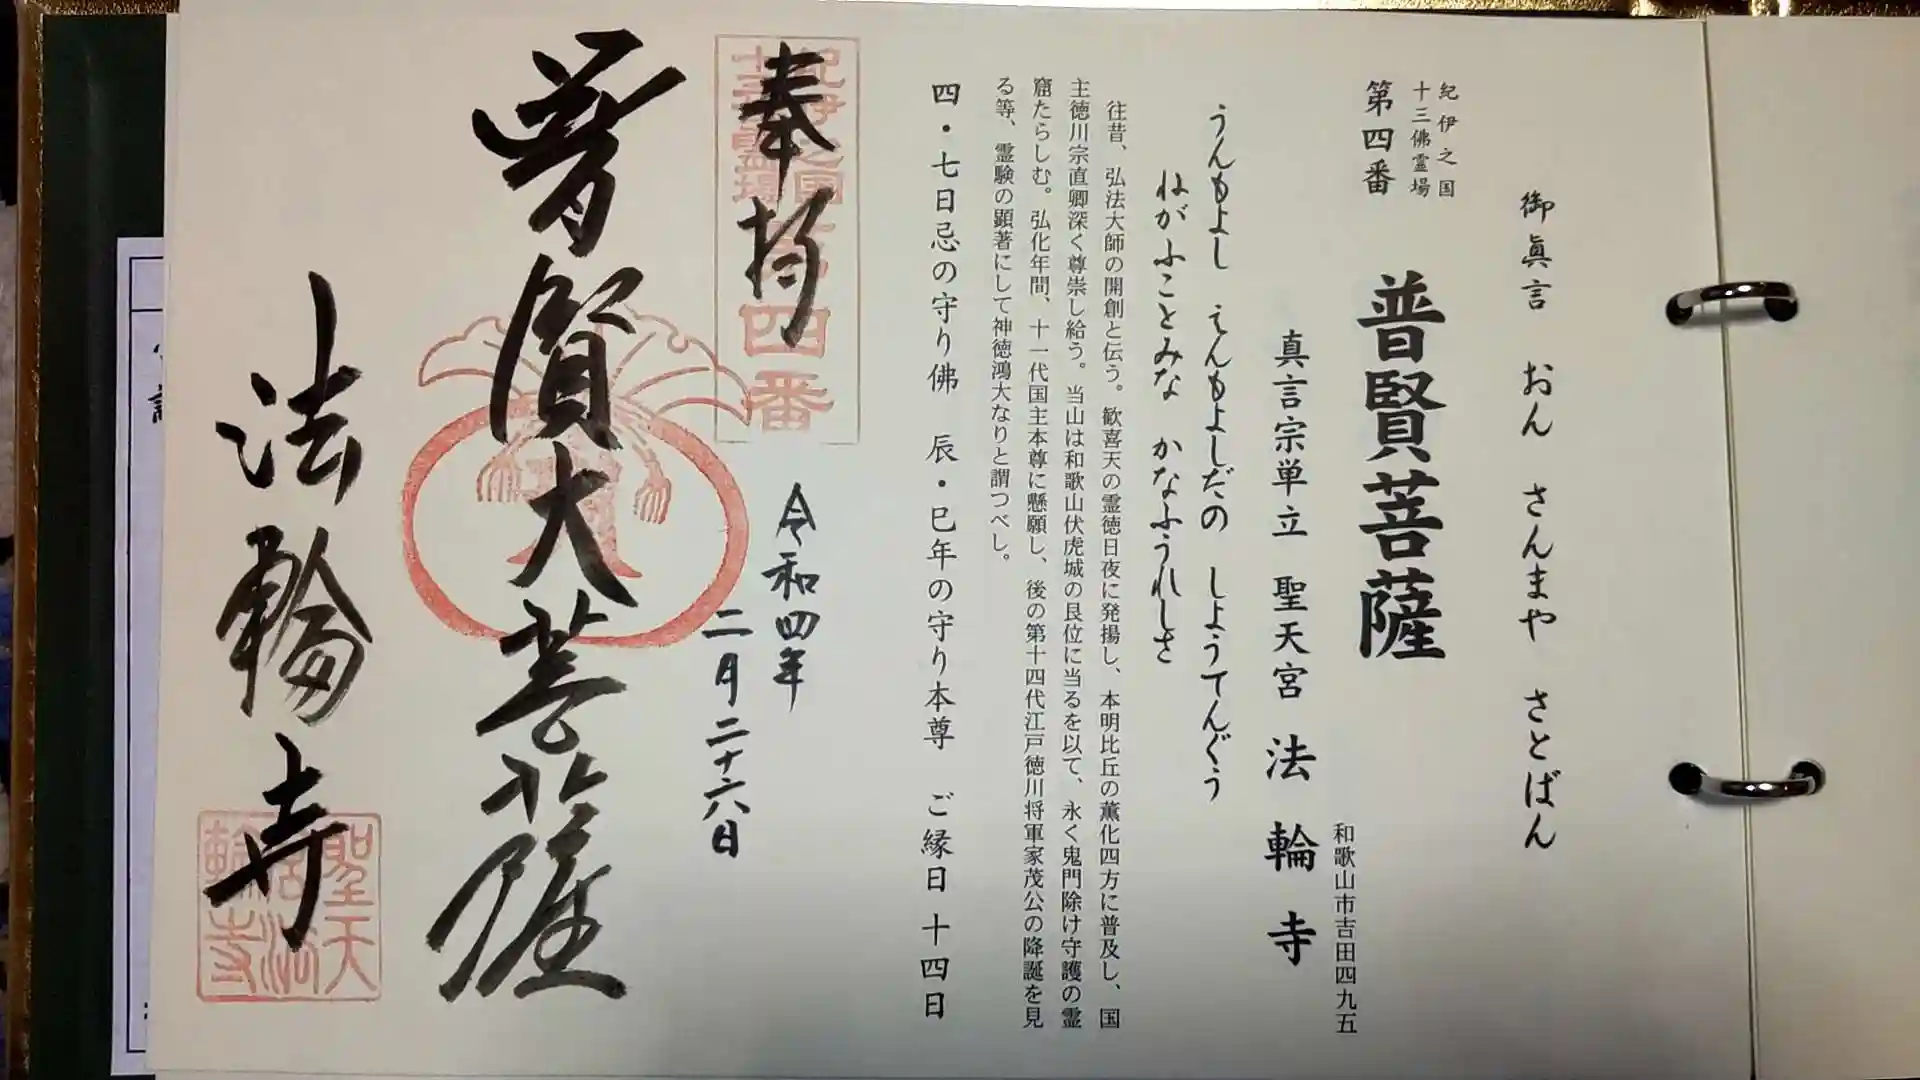 御眞言 おん さんまや さとばん
紀伊之国
十三佛霊場
第四番 普賢菩薩
和歌山市吉田四九五
真言宗単立 聖天宮 法輪寺
うんもよし えんもよしだの しようてんぐう
ねがふことみな かなふうれしさ
往昔、弘法大師の開創と伝う。歓喜天の霊徳日夜に発揚し、本明比丘の薫化四方に普及し、国
主徳川宗直卿深く尊崇し給う。当山は和歌山伏虎城の艮位に当るを以て、永く鬼門除け守護の霊
窟たらしむ。弘化年間、十一代国主本尊に懸願し、後の第十四代江戸徳川将軍家茂公の降誕を見
る等、霊験の顕著にして神徳鴻大なりと謂つべし。
四・七日忌の守り佛 辰・巳年の守り本尊 ご縁日 十四日
奉拝
紀伊之国
十三佛霊場
第四番
令和四年
二月二十六日
普賢大菩薩
法輪寺
聖天
宮法
輪寺